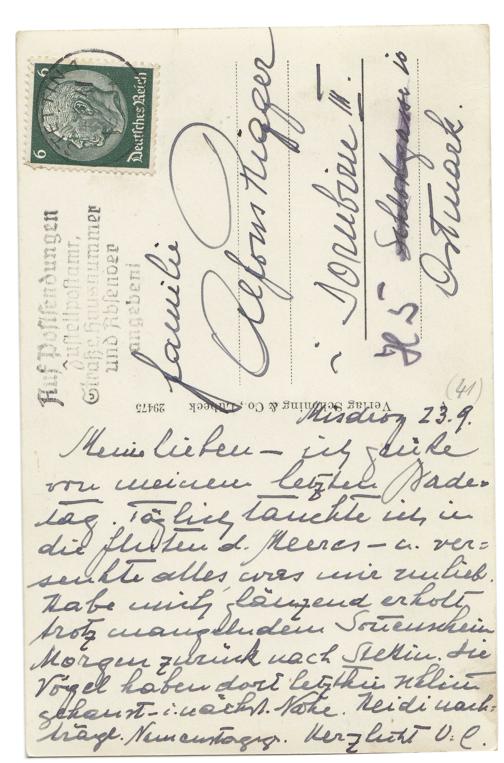 6 6
Deutsches Reich
Auf Postsendungen
Zustellpostamt,
Straße, Hausnummer
und Absender
angeben!
Familie
Alfons Rigger
Dornbirn III.
H 5
10
Ostmark.
Verlag Schöning & Co., Lübeck
29475
(41)
Misdroy 23.9.
Meine lieben – ich grüße
von meinem letzten Bade-
tag. Täglich tauchte ich in
die fluten d. Meeres – u. ver=
senkte alles, was mir unlieb.
Habe mich glänzend erholt
trotz mangelndem Sonnenschein
Morgen zurück nach Stettin. Die
Vögel haben dort letzthin
gehaust – i. nächst. Nähe. Heidi nach=
trägl. Herzlichst